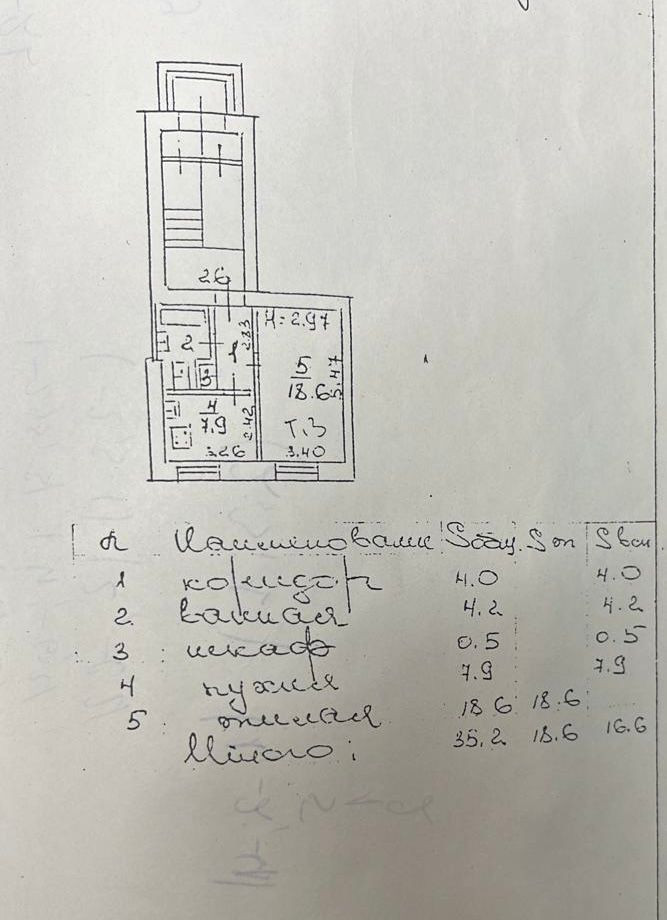 26
H=2.97
2
1
2.83
3
5
18.6
5.47
4
7.9
2.42
Т.3
3.26
3.40
п Наименование Sобщ. Sж Sвсп
1 коридор 4.0 4.0
2 ванная 4.2 4.2
3 шкаф 0.5 0.5
4 кухня 7.9 7.9
5 жилая 18.6 18.6
Итого: 35.2 18.6 16.6